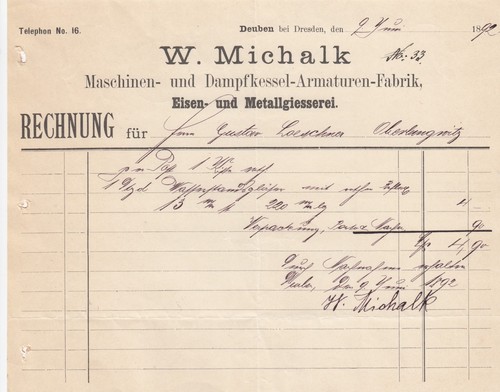 Telephon No. 16.
Deuben bei Dresden, den 9 Juni 1892
W. Michalk
No: 33.
Maschinen- und Dampfkessel-Armaturen-Fabrik,
Eisen- und Metallgiesserei.
RECHNUNG für Herrn Gustav Loeschner Oberlungwitz
per Post 1
1 Dtzd Wasserstandsgläser mit
13 m/m 220 m/m lg 4
Verpackung, 90
4,90
Durch Nachnahme erhalten
Deuben, den 9 Juni 1892
W. Michalk